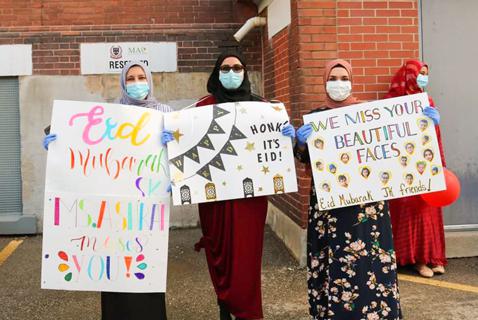 MAC
RESERVED
Eid
Mubarak
SK
MS. ASHRAF
misses
YOU!
HONK
IT'S
EID!
WE MISS YOUR
BEAUTIFUL
FACES
Eid Mubarak JK friends!